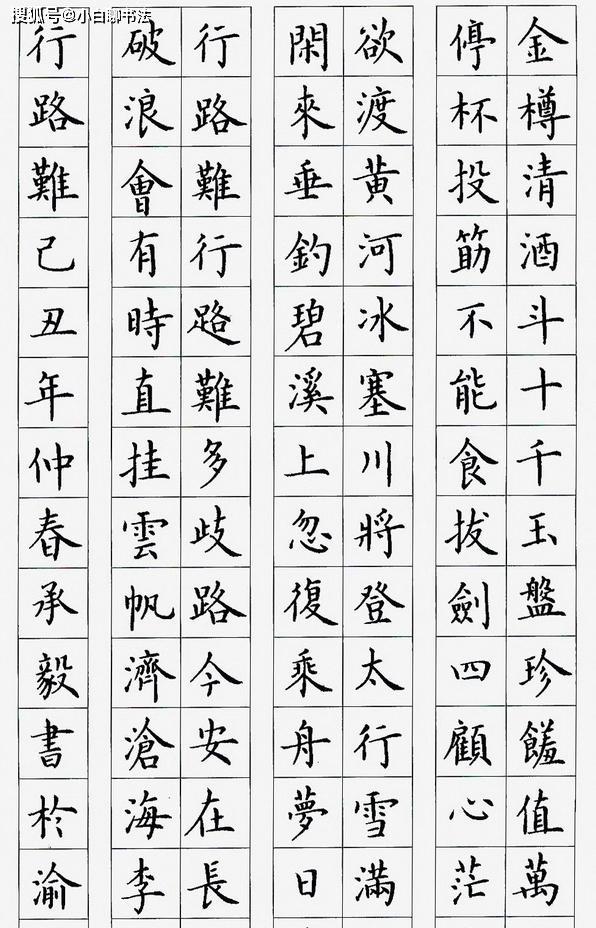 搜狐号@小白聊书法
金樽清酒斗十千玉盤珍饈值萬
停杯投筋不能食拔劍四顧心茫
欲渡黄河冰塞川將登太行雪滿
閑來垂釣碧溪上忽復乘舟夢日
行路難行路難多歧路今安在長
破浪會有時直挂雲帆濟滄海李
行路難己丑年仲春承毅書於渝